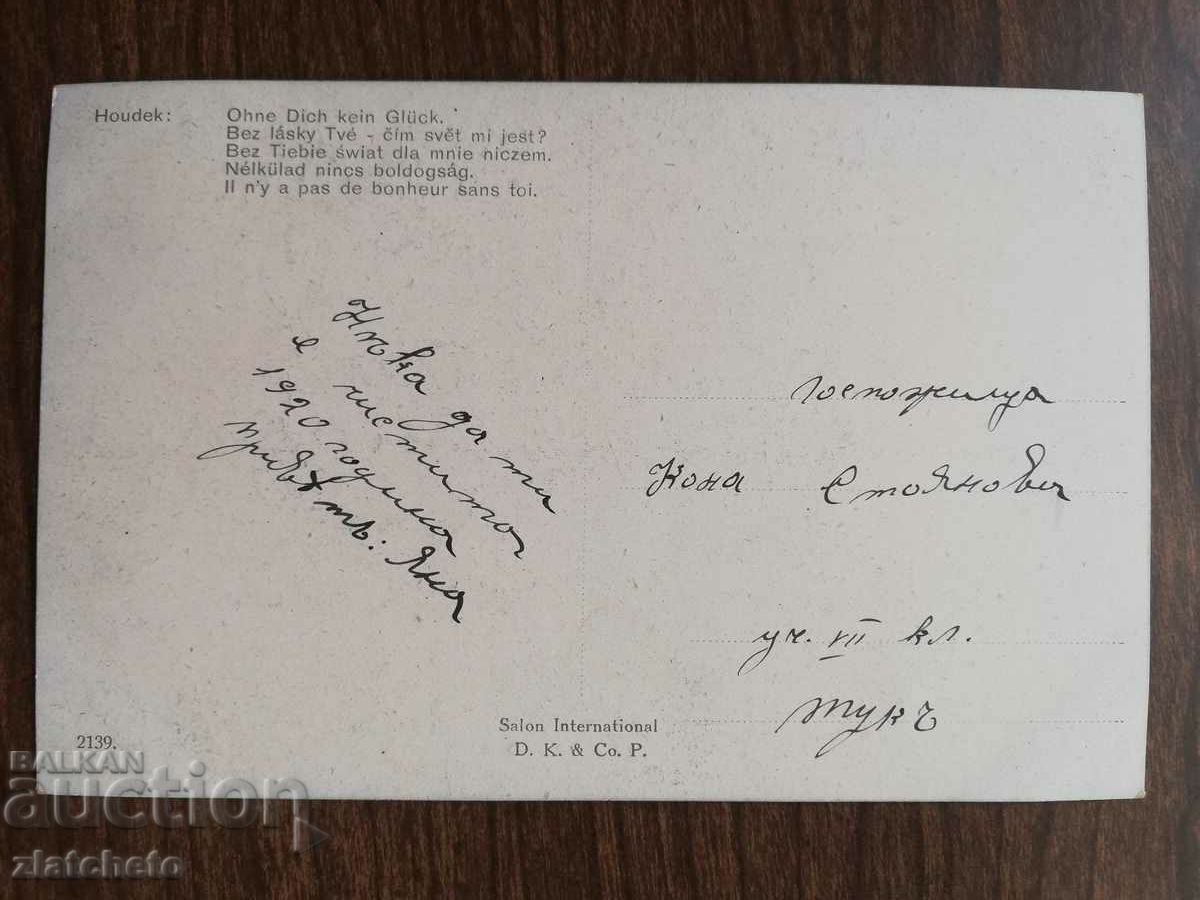 Houdek: Ohne Dich kein Glück.
Bez lásky Tvé - čím svět mi jest?
Bez Tiebie świat dla mnie niczem.
Nélkülad nincs boldogság.
Il n'y a pas de bonheur sans toi.
Нѣка да ти
е честита
1920 година
привѣтъ: Яна
Госпожица
Кона Стоянова
уч. VII кл.
тукъ
Salon International
D. K. & Co. P.
2139.
BALKAN
auction
zlatcheto